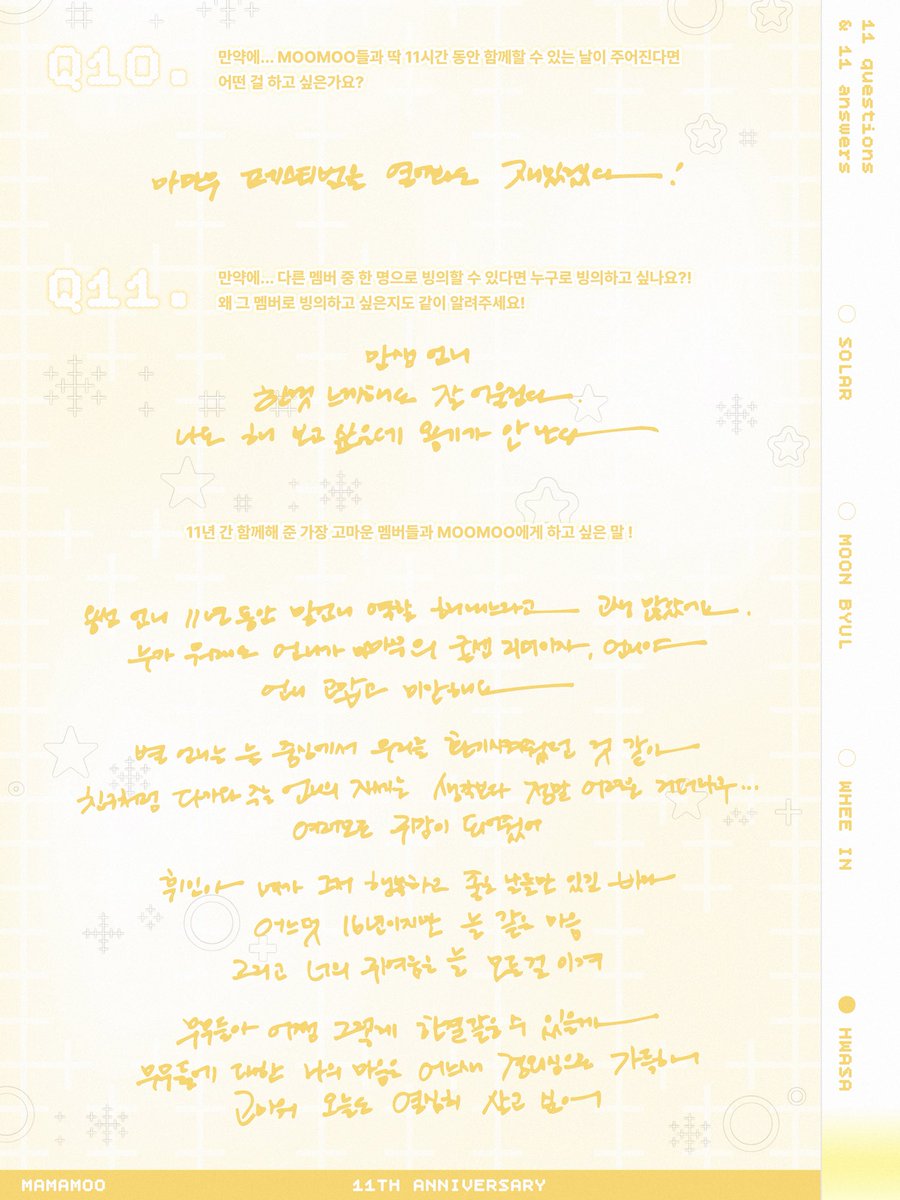 Q10.
만약에... MOOMOO들과 딱 11시간 동안 함께할 수 있는 날이 주어진다면
어떤 걸 하고 싶은가요?
마마무 페스티벌을 열면 재밌겠다!
Q11.
만약에... 다른 멤버 중 한 명으로 빙의할 수 있다면 누구로 빙의하고 싶나요?!
왜 그 멤버로 빙의하고 싶은지도 같이 알려주세요!
언니
잘 어울린다.
나도 해 보고 싶은데 용기가 안 난다
11년 간 함께해 준 가장 고마운 멤버들과 MOOMOO에게 하고 싶은 말 !
용선 언니 11년 동안 맏언니 역할 해내느라고 고생 많았어요.
누가 뭐래도 언니가 마마무의 리더이자, 언니야
언니 고맙고 미안해요
별 언니는 늘 중심에서 우리를 환기시켜줬던 것 같아
친구처럼 다가와 주는 언니의 자세는 생각보다 정말 어려운 거더라구...
여러모로 귀감이 되어줬어
휘인아 네가 그저 행복하고 좋은 날들만 있길 바라
어느덧 16년이지만 늘 같은 마음
그리고 너의 귀여움은 늘 모든 걸 이겨
무무들아 어쩜 그렇게 한결같을 수 있을까
무무들에 대한 나의 마음은 어느새 경외심으로 가득하어
고마워 오늘도 열심히 살고 보어
11 questions
& 11 answers
SOLAR
MOON BYUL
WHEE IN
HWASA
MAMAMOO
11TH ANNIVERSARY